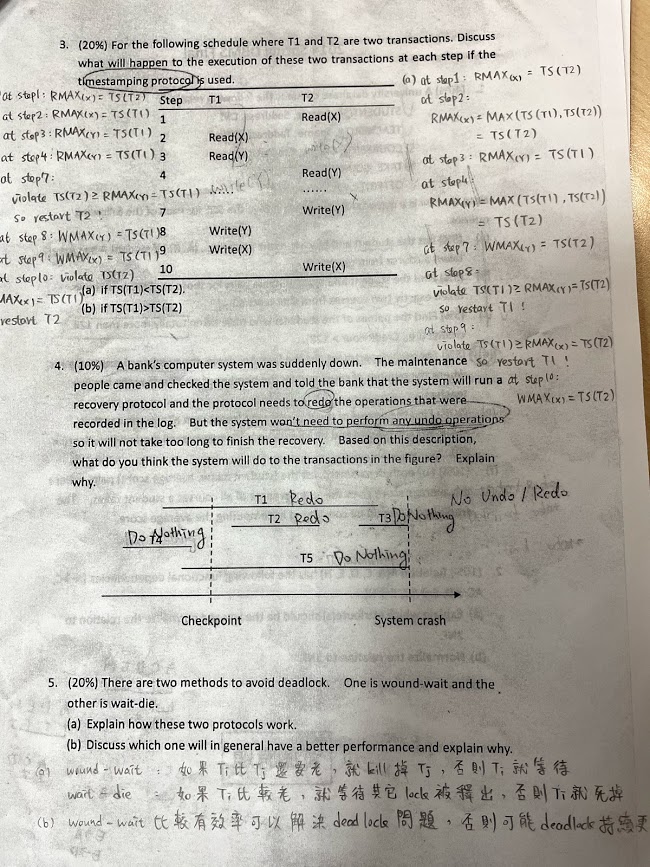 3. (20%) For the following schedule where T1 and T2 are two transactions. Discuss
what will happen to the execution of these two transactions at each step if the
timestamping protocol is used.
Step T1 T2
1 Read(X)
2 Read(X)
3 Read(Y)
4 Read(Y)
...... ......
7 Write(Y)
8 Write(Y)
9 Write(X)
10 Write(X)
(a) if TS(T1)<TS(T2).
(b) if TS(T1)>TS(T2)
at step1: RMAX(X) = TS(T2)
at step2: RMAX(X) = TS(T1)
at step3: RMAX(Y) = TS(T1)
at step4: RMAX(Y) = TS(T1)
at step7:
violate TS(T2) ≥ RMAX(Y) = TS(T1)
so restart T2 !
at step 8: WMAX(Y) = TS(T1)
at step9: WMAX(X) = TS(T1)
at step10: violate TS(T2)
MAX(X) = TS(T1)
restart T2
(a) at step1: RMAX(X) = TS(T2)
at step2:
RMAX(X) = MAX(TS(T1),TS(T2))
= TS(T2)
at step3: RMAX(Y) = TS(T1)
at step4:
RMAX(Y) = MAX(TS(T1),TS(T2))
= TS(T2)
at step7: WMAX(Y) = TS(T2)
at step8:
violate TS(T1) ≥ RMAX(Y) = TS(T2)
so restart T1 !
at step9:
violate TS(T1) ≥ RMAX(X) = TS(T2)
so restart T1 !
at step10:
WMAX(X) = TS(T2)
4. (10%) A bank's computer system was suddenly down. The maintenance
people came and checked the system and told the bank that the system will run a
recovery protocol and the protocol needs to redo the operations that were
recorded in the log. But the system won't need to perform any undo operations
so it will not take too long to finish the recovery. Based on this description,
what do you think the system will do to the transactions in the figure? Explain
why.
T1 Redo
No Undo / Redo
T2 Redo T3 Do Nothing
Do Nothing
T5 Do Nothing
Checkpoint System crash
5. (20%) There are two methods to avoid deadlock. One is wound-wait and the
other is wait-die.
(a) Explain how these two protocols work.
(b) Discuss which one will in general have a better performance and explain why.
(a) wound-wait : 如果 Ti 比 Tj 還要老,就 kill 掉 Tj,否則 Ti 就等待
wait-die : 如果 Ti 比較老,就等待其它 lock 被釋出,否則 Ti 就死掉
(b) wound-wait 比較有效率可以解決 deadlock 問題,否則可能 deadlock 持續更